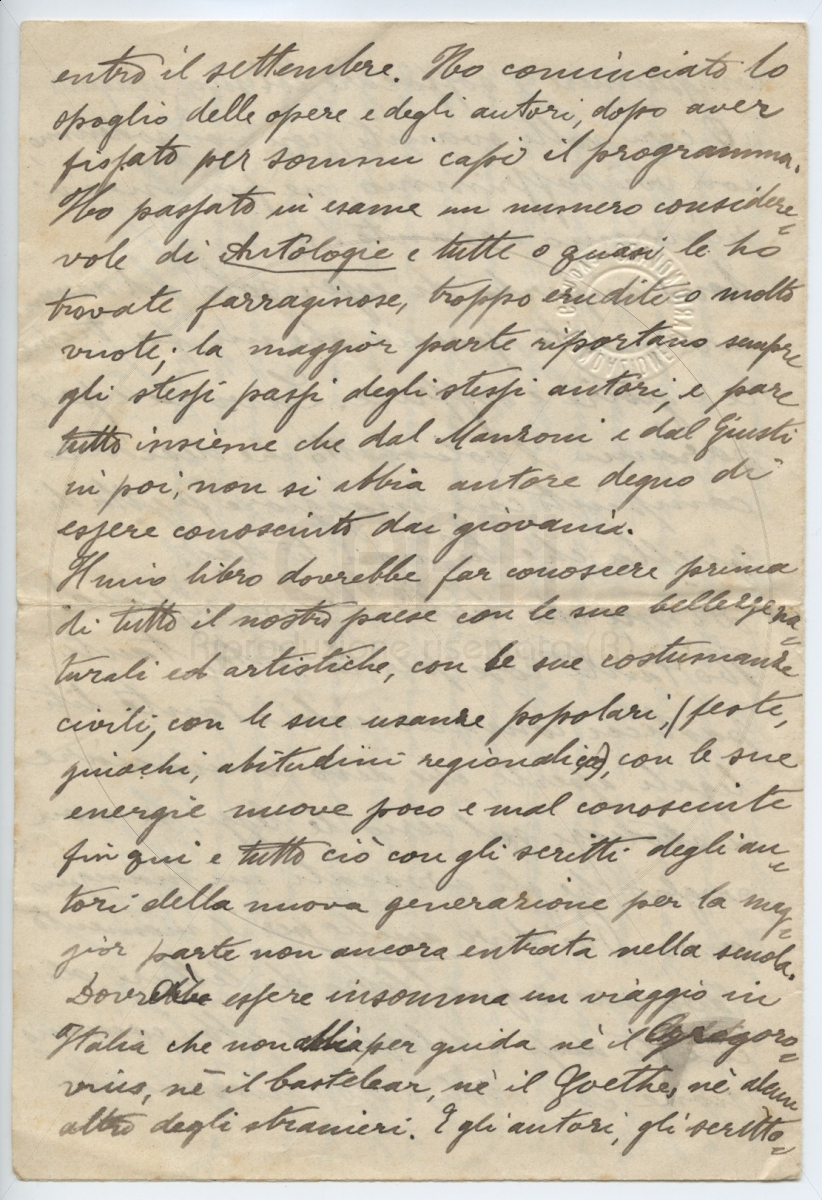 entro il settembre. Ho cominciato lo
spoglio delle opere e degli autori, dopo aver
fissato per sommi capi il programma.
Ho passato in esame un numero considere=
vole di Antologie e tutte o quasi le ho
trovate farraginose, troppo erudite o molto
vuote; la maggior parte riportano sempre
gli stessi passi degli stessi autori, e pare
tutto insieme che dal Manzoni e dal Giusti
in poi, non si abbia autore degno di
essere conosciuto dai giovani.
Il mio libro dovrebbe far conoscere prima
di tutto il nostro paese con le sue bellezze na=
turali ed artistiche, con le sue costumanze
civili, con le sue usanze popolari, (feste,
giuochi, abitudini regionali), con le sue
energie nuove poco e mal conosciute
fin qui e tutto ciò con gli scritti degli au=
tori della nuova generazione per la mag=
gior parte non ancora entrata nella scuola.
Dovrebbe essere insomma un viaggio in
Italia che non abbia per guida nè il Gregoro=
vius, nè il Castelar, nè il Goethe, nè alcun
altro degli stranieri. E gli autori, gli scritto=